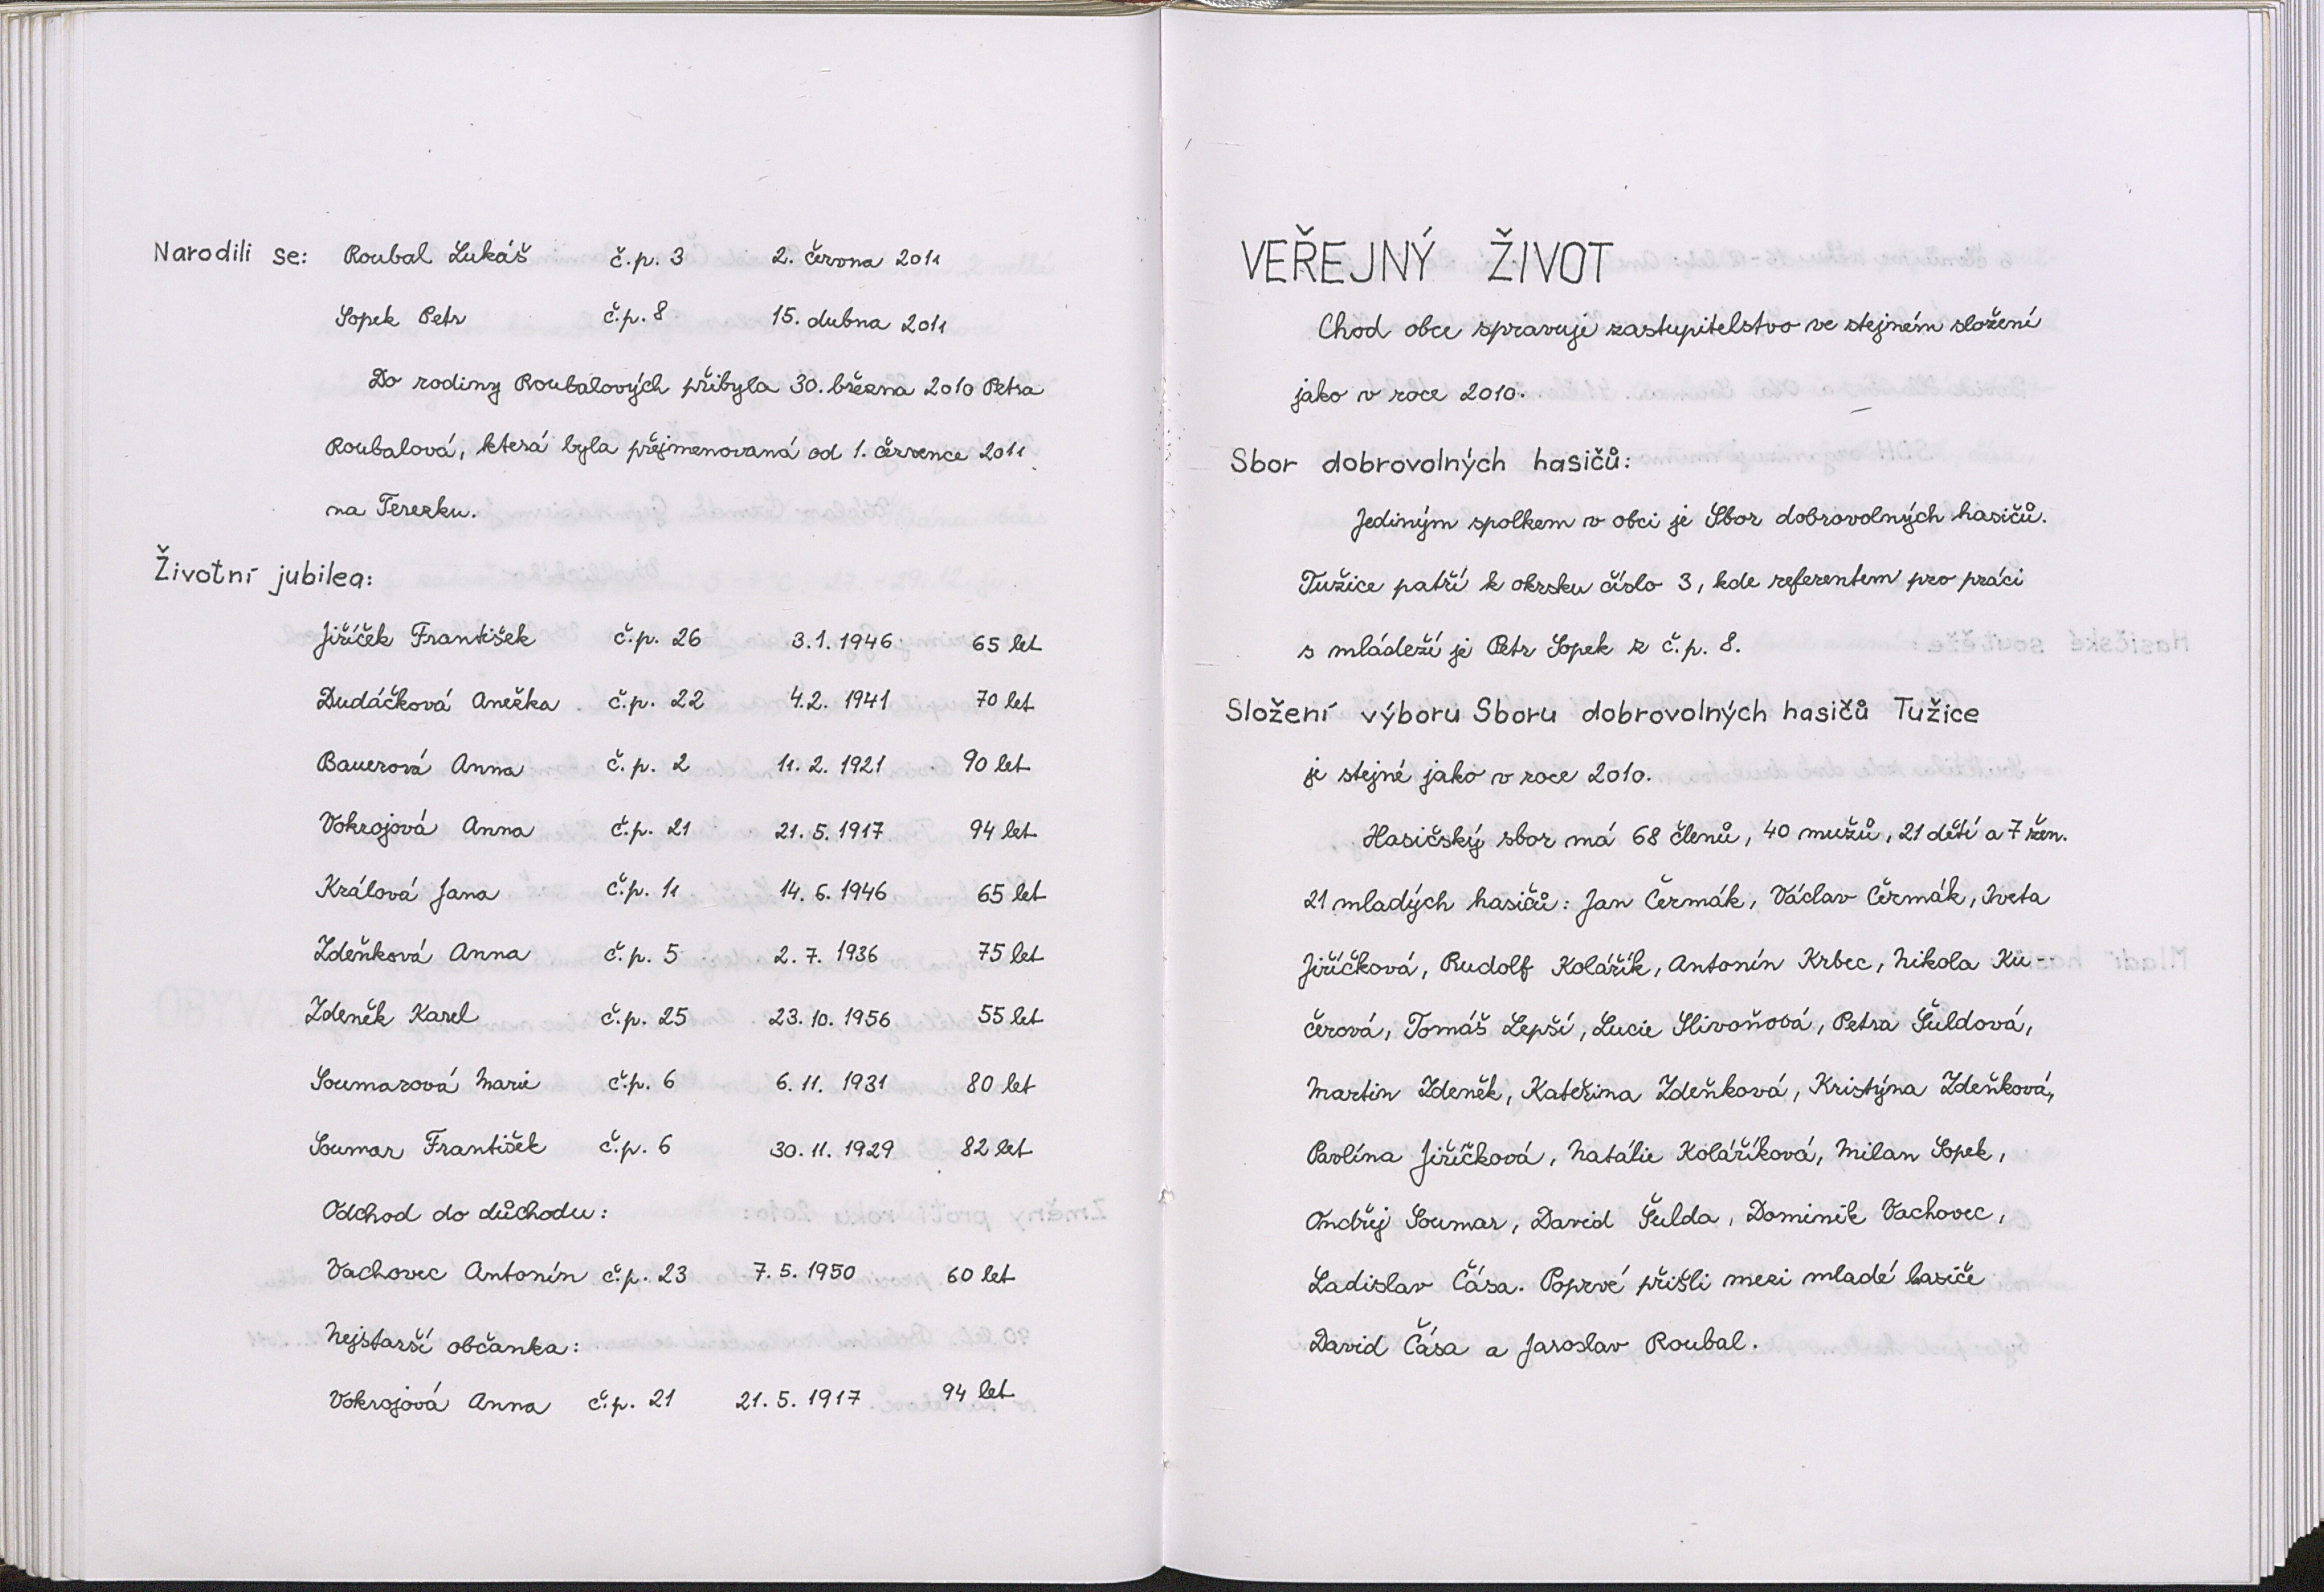 Narodili se: Roubal Lukáš č.p. 3 2. června 2011
Sopek Petr č.p. 8 15. dubna 2011
Do rodiny Roubalových přibyla 30. března 2010 Petra
Roubalová, která byla přejmenovaná od 1. července 2011
na Terezku.
Životní jubilea:
Jiříček František č.p. 26 3. 1. 1946 65 let
Dudáčková Anežka č.p. 22 4. 2. 1941 70 let
Bauerová Anna č.p. 2 11. 2. 1921 90 let
Vokrojová Anna č.p. 21 21. 5. 1917 94 let
Králová Jana č.p. 11 14. 6. 1946 65 let
Zdeňková Anna č.p. 5 2. 7. 1936 75 let
Zdeněk Karel č.p. 25 23. 10. 1956 55 let
Soumarová Marie č.p. 6 6. 11. 1931 80 let
Soumar František č.p. 6 30. 11. 1929 82 let
Odchod do důchodu:
Vachovec Antonín č.p. 23 7. 5. 1950 60 let
Nejstarší občanka:
Vokrojová Anna č.p. 21 21. 5. 1917 94 let
VEŘEJNÝ ŽIVOT
Chod obce spravuje zastupitelstvo ve stejném složení
jako v roce 2010.
Sbor dobrovolných hasičů:
Jediným spolkem v obci je Sbor dobrovolných hasičů.
Tužice patří k okrsku číslo 3, kde referentem pro práci
s mládeží je Petr Sopek z č.p. 8.
Složení výboru Sboru dobrovolných hasičů Tužice
je stejné jako v roce 2010.
Hasičský sbor má 68 členů, 40 mužů, 21 dětí a 7 žen.
21 mladých hasičů: Jan Čermák, Václav Čermák, Iveta
Jiříčková, Rudolf Kolářík, Antonín Krbec, Nikola Ku-
čerová, Tomáš Lepší, Lucie Slivoňová, Petra Šuldová,
Martin Zdeněk, Kateřina Zdeňková, Kristýna Zdeňková,
Pavlína Jiříčková, Natálie Koláříková, Milan Sopek,
Ondřej Soumar, David Šulda, Dominik Vachovec,
Ladislav Čása. Poprvé přišli mezi mladé hasiče
David Čása a Jaroslav Roubal.